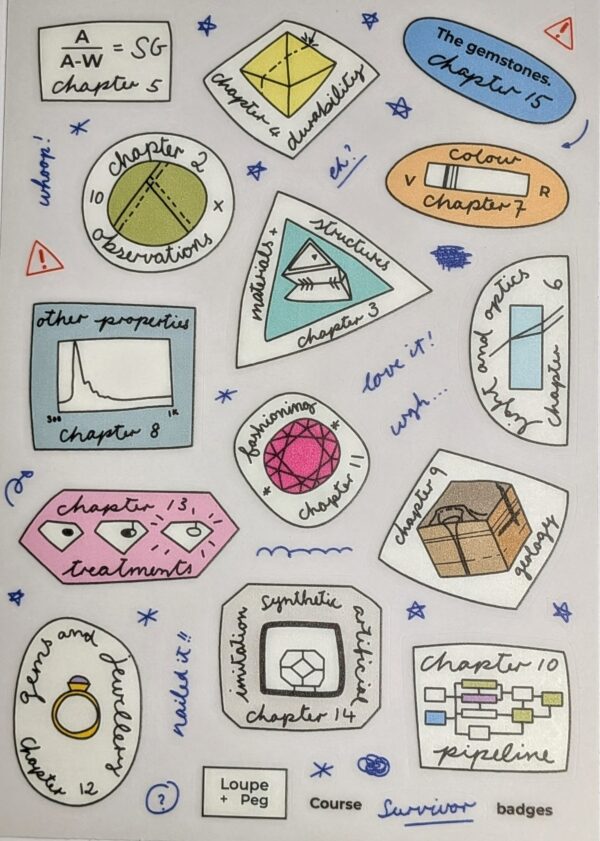 A
A-W
= SG
chapter 5
chapter 4
durability
The gemstones.
chapter 15
whoop!
chapter 2
10 x
observations
eh?
colour
V R
chapter 7
materials +
structures
chapter 3
!
!
other properties
300 1K
chapter 8
light and optics
chapter 6
love it!
urgh...
fashioning
chapter 11
chapter 9
geology
chapter 13,
treatments
gems and jewellery
chapter 12
nailed it!!
imitation
synthetic
artificial
chapter 14
chapter 10
pipeline
?
Loupe
+ Peg
Course Survivor badges